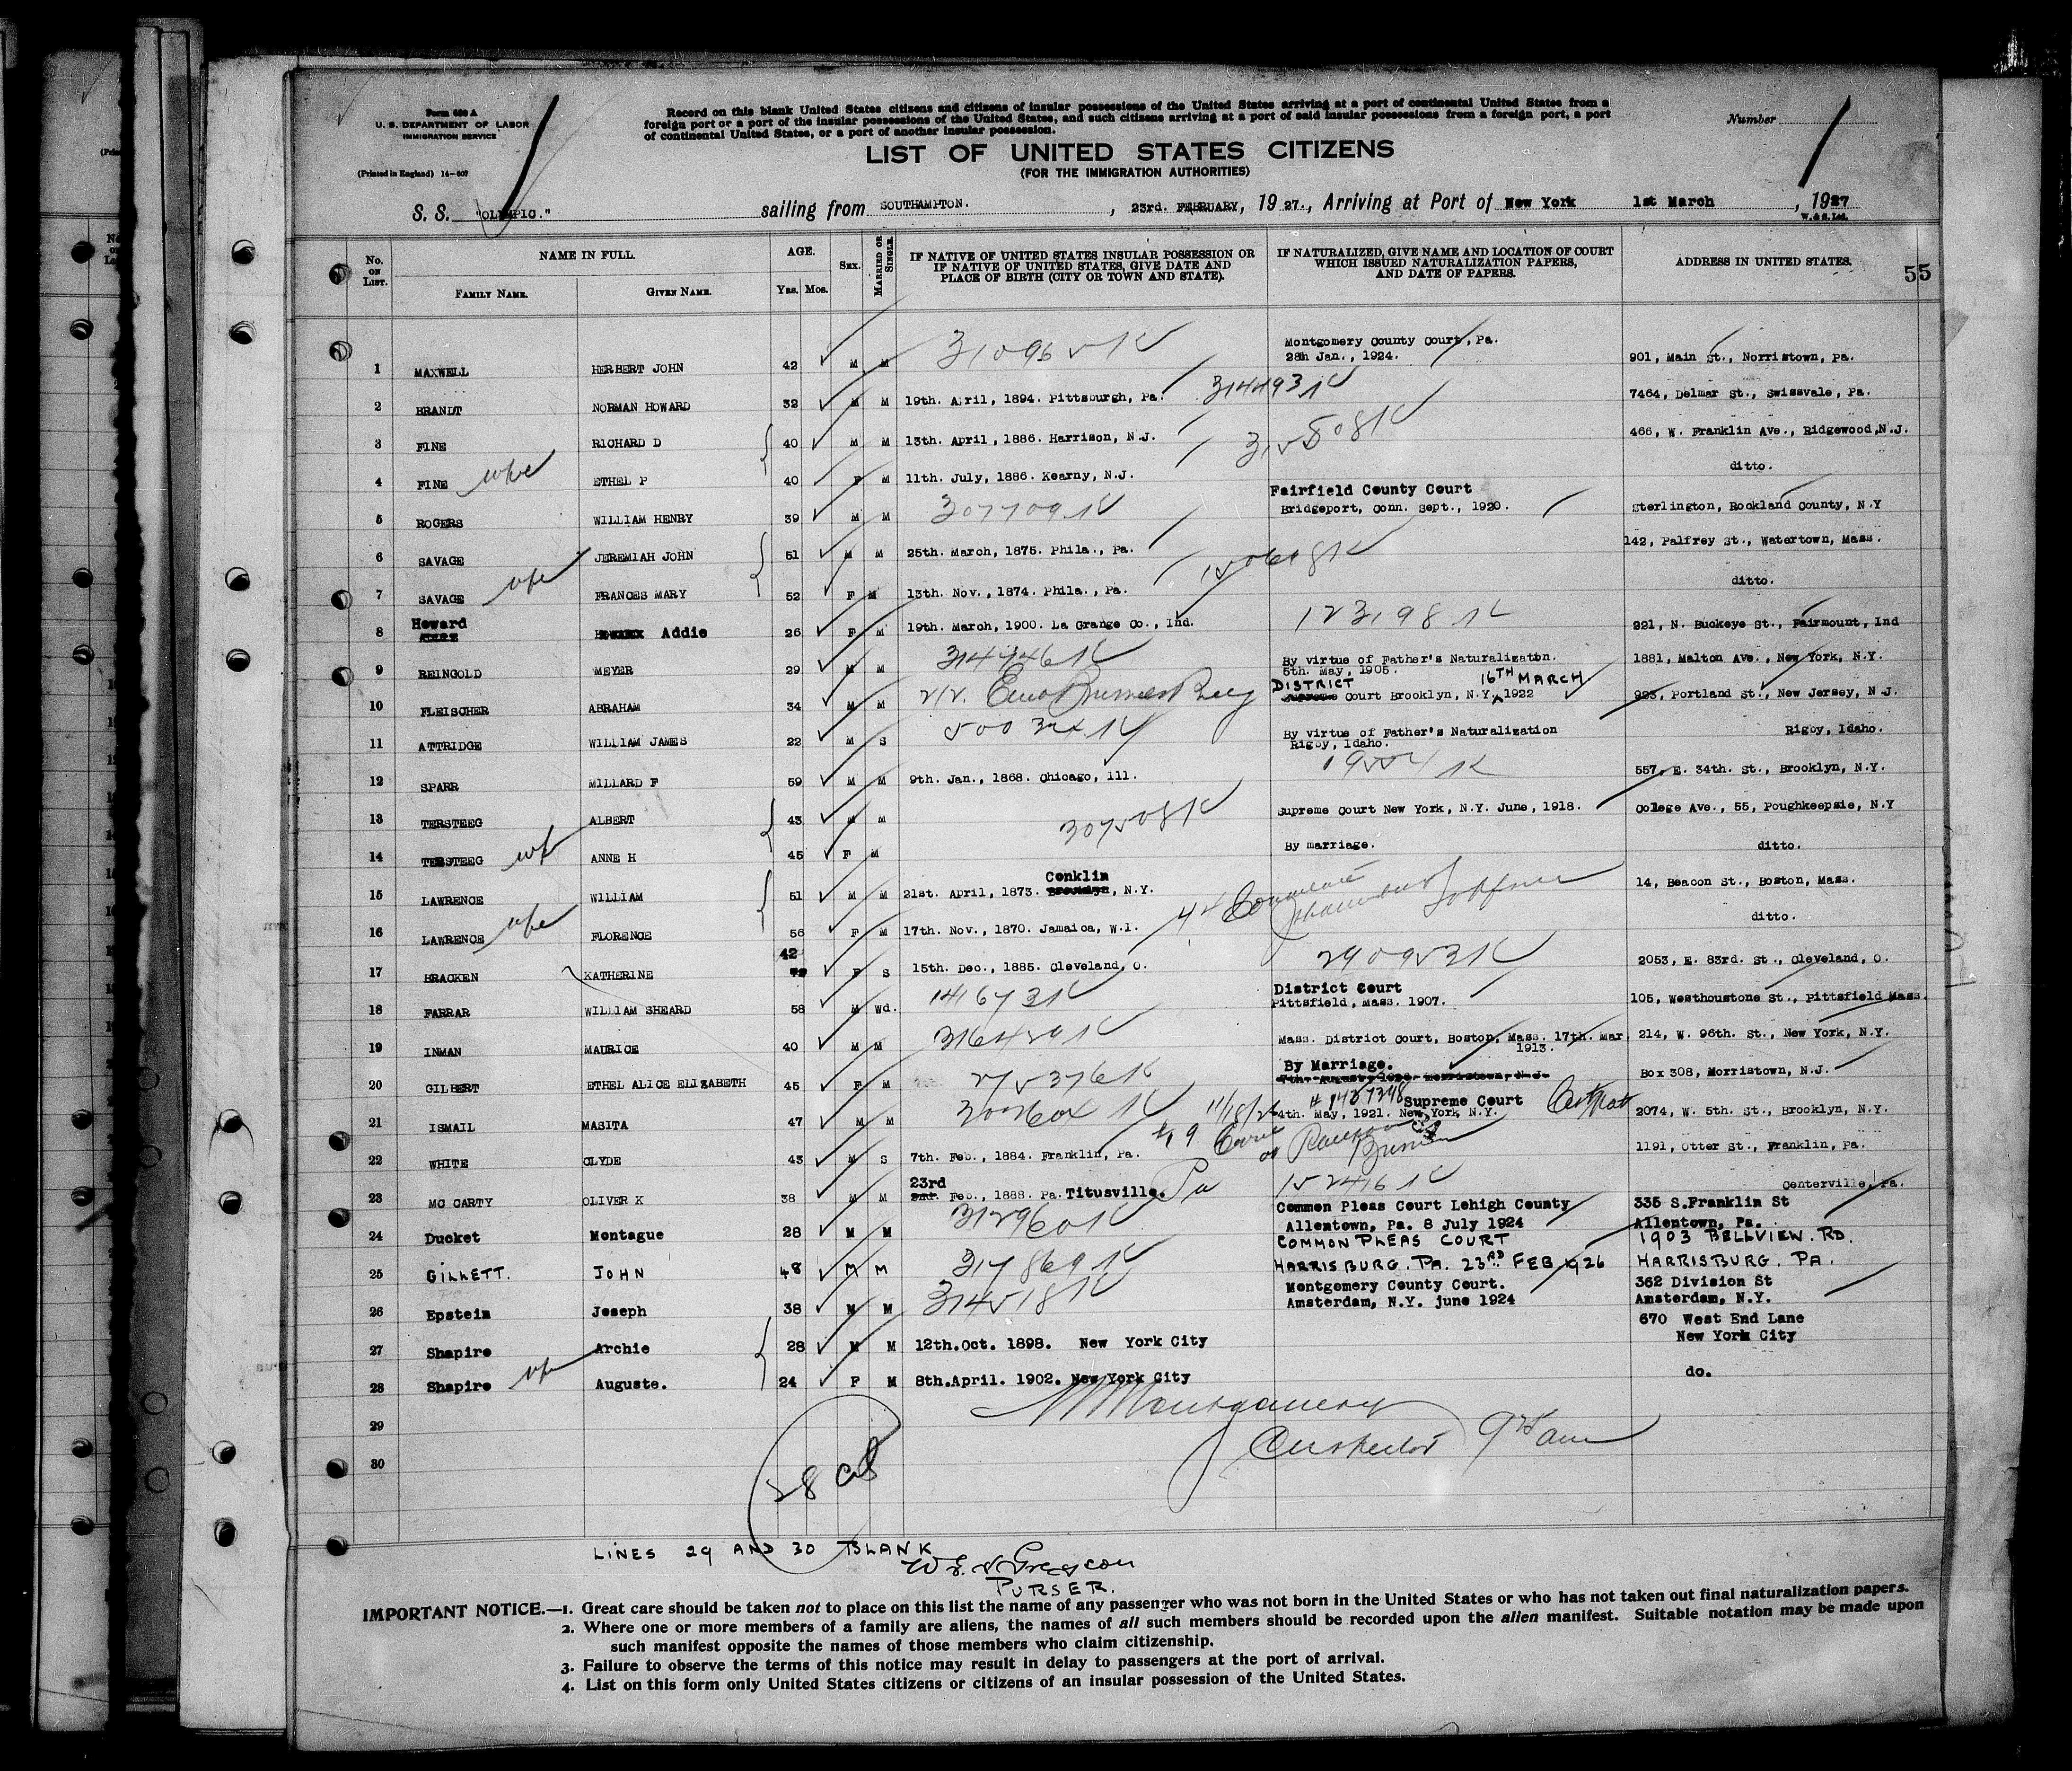 Form 630 A
U. S. DEPARTMENT OF LABOR
IMMIGRATION SERVICE
(Printed in England) 14-607
Record on this blank United States citizens and citizens of insular possessions of the United States arriving at a port of continental United States from a
foreign port or a port of the insular possessions of the United States, and such citizens arriving at a port of said insular possessions from a foreign port, a port
of continental United States, or a port of another insular possession.
Number
LIST OF UNITED STATES CITIZENS
(FOR THE IMMIGRATION AUTHORITIES)
S. S. "OLYMPIC." sailing from SOUTHAMPTON. , 23rd. FEBRUARY, 1927., Arriving at Port of New York 1st March , 1927
W. & S. Ltd.
No. ON LIST. NAME IN FULL. FAMILY NAME. GIVEN NAME. AGE. YRS. MOS. SEX. MARRIED OR SINGLE. IF NATIVE OF UNITED STATES INSULAR POSSESSION OR IF NATIVE OF UNITED STATES, GIVE DATE AND PLACE OF BIRTH (CITY OR TOWN AND STATE). IF NATURALIZED, GIVE NAME AND LOCATION OF COURT WHICH ISSUED NATURALIZATION PAPERS, AND DATE OF PAPERS. ADDRESS IN UNITED STATES. 55
1 MAXWELL HERBERT JOHN 42 M M Montgomery County Court, Pa. 28h Jan., 1924. 901, Main St., Norristown, Pa.
2 BRANDT NORMAN HOWARD 32 M M 19th. April, 1894. Pittsburgh, Pa. 314493 K 7464, Delmar St., Swissvale, Pa.
3 FINE RICHARD D 40 M M 13th. April, 1886. Harrison, N.J. 466, W. Franklin Ave., Ridgewood, N.J.
4 FINE wife ETHEL P 40 F M 11th. July, 1886. Kearny, N.J. ditto.
5 ROGERS WILLIAM HENRY 39 M M 307709 K Fairfield County Court Bridgeport, Conn. Sept., 1920. Sterlington, Rockland County, N.Y
6 SAVAGE JEREMIAH JOHN 51 M M 25th. March, 1875. Phila., Pa. 142, Palfrey St., Watertown, Mass.
7 SAVAGE wife FRANCES MARY 52 F M 13th. Nov., 1874. Phila., Pa. ditto.
8 Howard Addie 26 F M 19th. March, 1900. La Grange Co., Ind. 123198 K 221, N. Buckeye St., Fairmount, Ind
9 REINGOLD MEYER 29 M M 314446 K By virtue of Father's Naturalizaton. 5th. May, 1905. 1881, Malton Ave., New York, N.Y.
10 FLEISCHER ABRAHAM 34 M M DISTRICT Court Brooklyn, N.Y. 16TH MARCH 1922 923, Portland St., New Jersey, N.J.
11 ATTRIDGE WILLIAM JAMES 22 M S By virtue of Father's Naturalization Rigby, Idaho. Rigby, Idaho.
12 SPARR MILLARD F 59 M M 9th. Jan., 1868. Chicago, Ill. 557, E. 34th. St., Brooklyn, N.Y.
13 TERSTEEG ALBERT 43 M M 307508 K Supreme Court New York, N.Y. June, 1918. College Ave., 55, Poughkeepsie, N.Y
14 TERSTEEG wf ANNE H 45 F M By marriage. ditto.
15 LAWRENCE WILLIAM 51 M M 21st. April, 1873. Conklin Brooklyn, N.Y. 14, Beacon St., Boston, Mass.
16 LAWRENCE wife FLORENCE 56 F M 17th. Nov., 1870. Jamaica, W.I. ditto.
17 BRACKEN KATHERINE 42 F S 15th. Dec., 1885. Cleveland, O. 290953 K 2053, E. 83rd. St., Cleveland, O.
18 FARRAR WILLIAM SHEARD 58 M Wd. 141673 K District Court Pittsfield, Mass. 1907. 105, Westhoustone St., Pittsfield Mass.
19 INMAN MAURICE 40 M M Mass. District Court, Boston, Mass. 17th. Mar. 1913. 214, W. 96th. St., New York, N.Y.
20 GILBERT ETHEL ALICE ELIZABETH 45 F M 275376 K By Marriage. 7th. August, 1920. Morristown, N.J. Box 308, Morristown, N.J.
21 ISMAIL MASITA 47 M M Supreme Court 4th. May, 1921. New York, N.Y. 2074, W. 5th. St., Brooklyn, N.Y.
22 WHITE CLYDE 43 M S 7th. Feb., 1884. Franklin, Pa. 1191, Otter St., Franklin, Pa.
23 MC CARTY OLIVER K 38 M M 23rd Feb., 1888. Pa. Titusville. Pa 152416 K Centerville, Pa.
24 Ducket Montague 28 M M 312960 K Common Pleas Court Lehigh County Allentown, Pa. 8 July 1924 335 S.Franklin St Allentown, Pa.
25 GILLETT. JOHN 48 M M 317869 K COMMON PLEAS COURT HARRISBURG. PA. 23RD FEB 1926 1903 BELLVIEW. RD. HARRISBURG. PA.
26 Epstein Joseph 38 M M 314518 K Montgomery County Court. Amsterdam, N.Y. june 1924 362 Division St Amsterdam, N.Y.
27 Shapiro Archie 28 M M 12th.Oct. 1898. New York City 670 West End Lane New York City
28 Shapiro wife Auguste. 24 F M 8th.April. 1902. New York City do.
29
30
Montgomery
Inspector 9 am
28
LINES 29 AND 30 BLANK
PURSER.
IMPORTANT NOTICE.—1. Great care should be taken not to place on this list the name of any passenger who was not born in the United States or who has not taken out final naturalization papers.
2. Where one or more members of a family are aliens, the names of all such members should be recorded upon the alien manifest. Suitable notation may be made upon
such manifest opposite the names of those members who claim citizenship.
3. Failure to observe the terms of this notice may result in delay to passengers at the port of arrival.
4. List on this form only United States citizens or citizens of an insular possession of the United States.